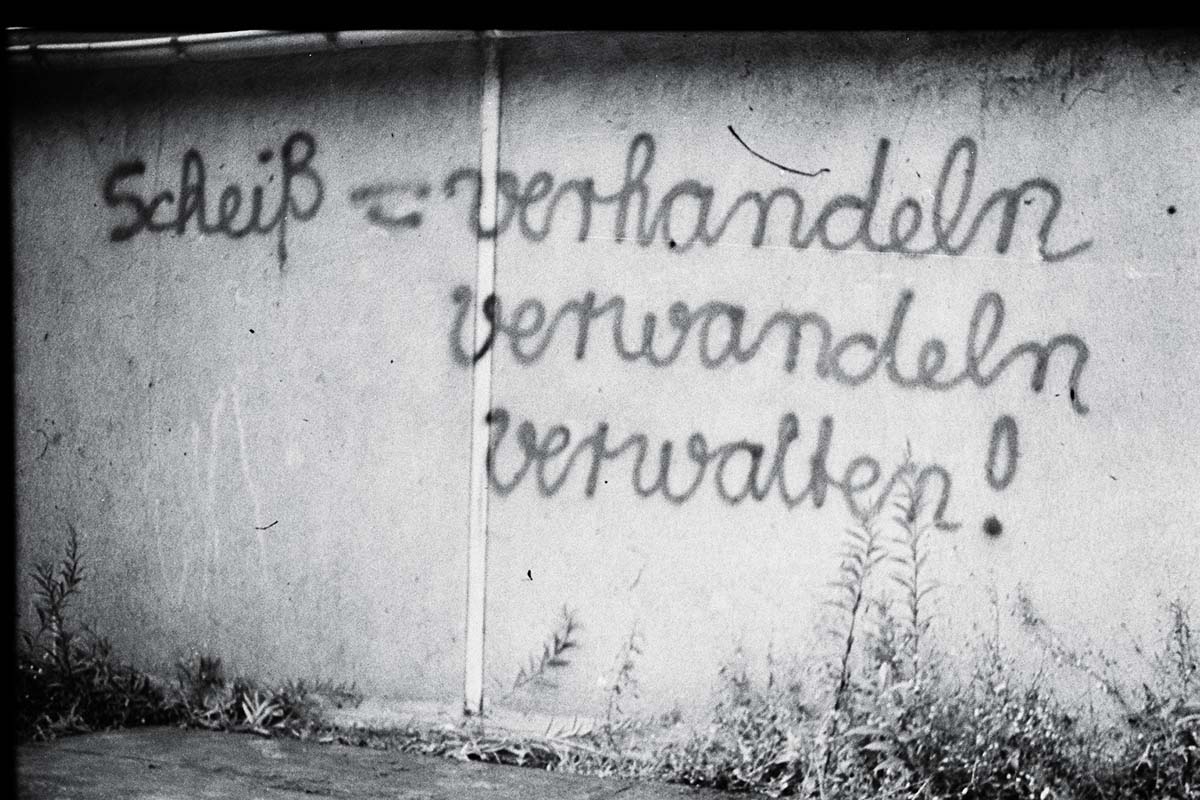 Scheiß = verhandeln
verwandeln
verwalten!